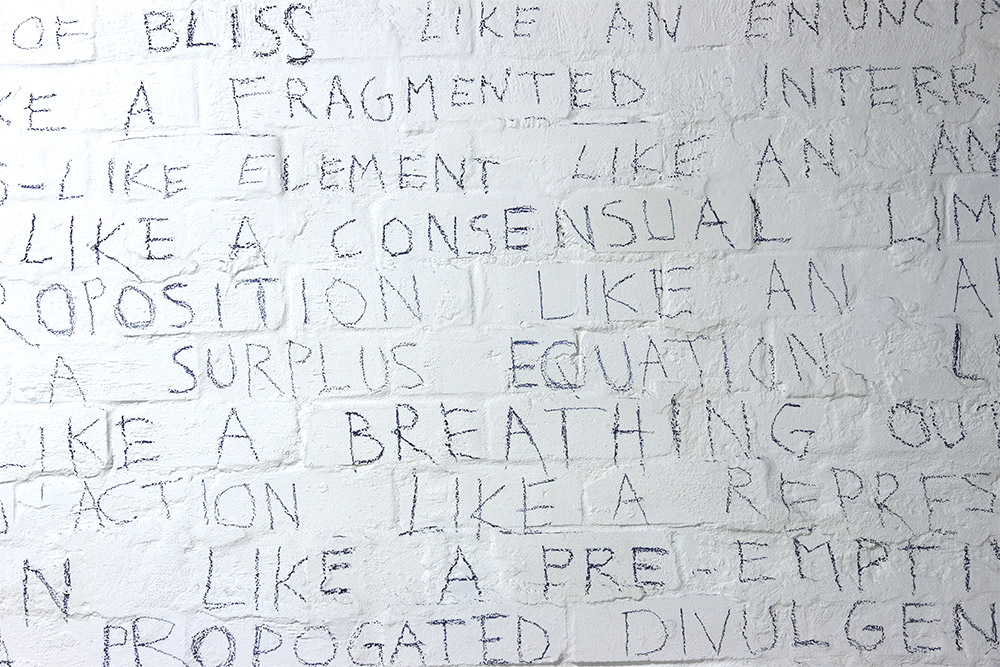 OF BLISS LIKE AN ENUNCIA
KE A FRAGMENTED INTERR
G-LIKE ELEMENT LIKE AN AN
LIKE A CONSENSUAL LIM
ROPOSITION LIKE AN A
A SURPLUS EQUATION L
LIKE A BREATHING OUT
D'ACTION LIKE A REPRES
N LIKE A PRE-EMPTIV
A PROPOGATED DIVULGEN